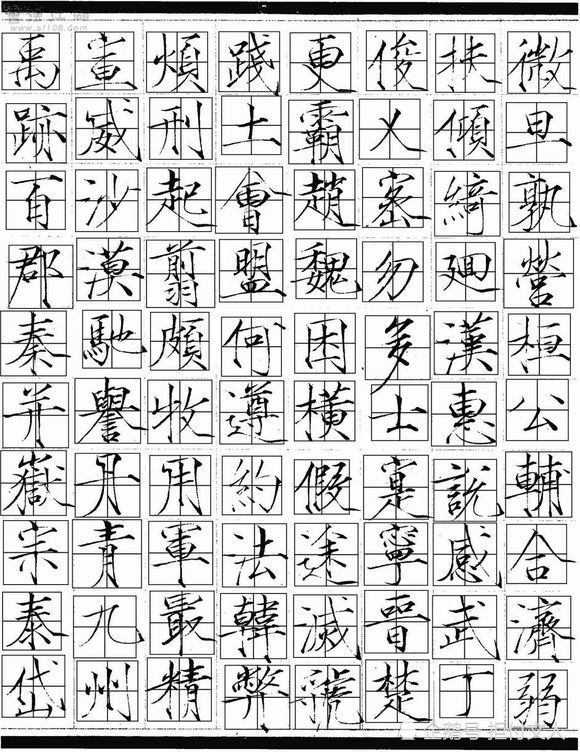 書法江湖
www.sf108.com
微旦孰營桓公輔合濟弱
扶傾綺廻漢惠說感武丁
俊乂密勿多士寔寧晉楚
更霸趙魏困橫假途滅虢
踐土會盟何遵約法韓弊
煩刑起翦頗牧用軍最精
宣威沙漠馳譽丹青九州
禹跡百郡秦并嶽宗泰岱
企鹅号